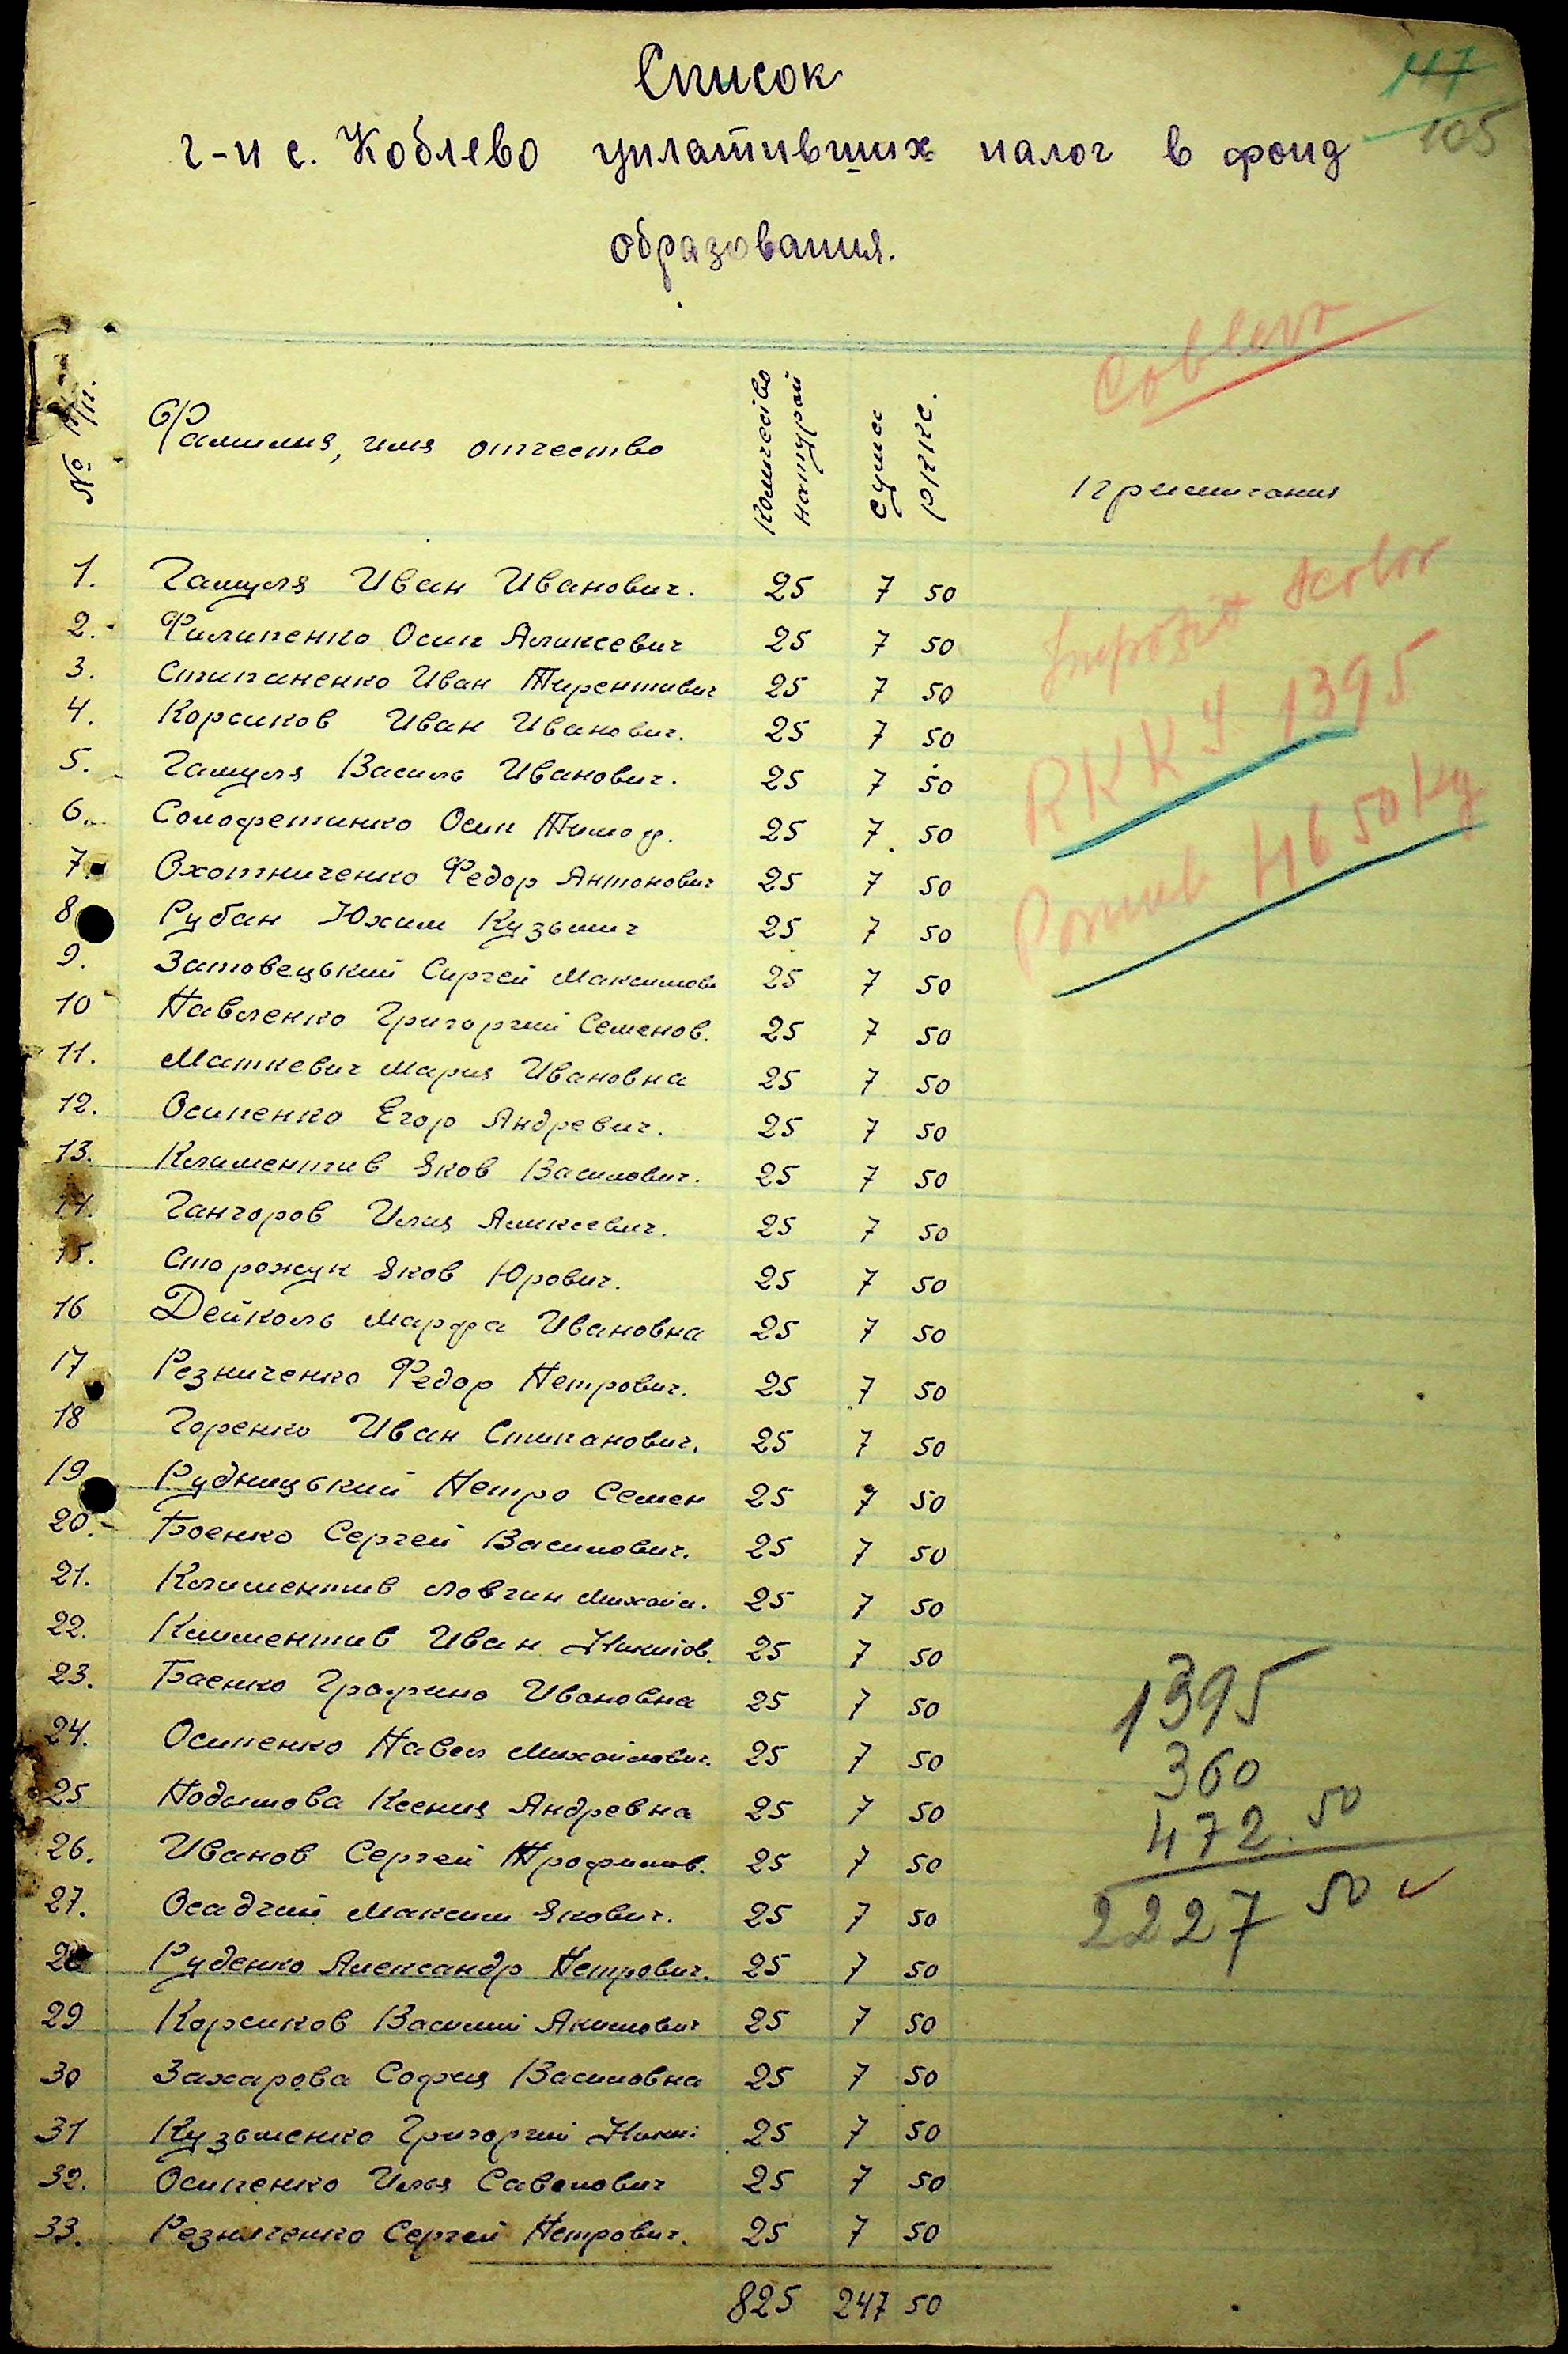 Список
117
105
г-н с. Коблево уплативших налог в фонд
образования.
Coblevo
№ п/п. Фамилия, имя отчество Количество натурой Сумма РККС. Примичания
1. Гамуля Иван Иванович. 25 7 50
2. Филипенко Осип Аликсевич 25 7 50
3. Стипаненко Иван Тирентивич 25 7 50
4. Корсиков Иван Иванович. 25 7 50
5. Гамуля Василь Иванович. 25 7 50
6. Солофетинко Осип Тимоф. 25 7 50
7. Охотниченко Федор Антонович 25 7 50
8 Рубан Юхим Кузьмич 25 7 50
9. Затовецький Сиргей Максимов 25 7 50
10 Павленко Григоргий Семенов. 25 7 50
11. Маткевич Мария Ивановна 25 7 50
12. Осипенко Егор Андревич. 25 7 50
13. Климентив Яков Василович. 25 7 50
14. Ганчоров Илия Аликсевич. 25 7 50
15. Сторожук Яков Юрович. 25 7 50
16 Дейколь Марфа Ивановна 25 7 50
17 Резниченко Федор Петрович. 25 7 50
18 Горенко Иван Стипанович. 25 7 50
19 Рудницький Петро Семен 25 7 50
20. Боенко Сергей Василович. 25 7 50
21. Климентив Ловгин Михайл. 25 7 50
22. Климентив Иван Никитов. 25 7 50
23. Баенко Графина Ивановна 25 7 50
24. Осипенко Павел Михайлович. 25 7 50
25 Подымова Ксения Андревна 25 7 50
26. Иванов Сергей Трофимов. 25 7 50
27. Осадчий Максим Якович. 25 7 50
28 Руденко Александр Петрович. 25 7 50
29 Корсиков Василий Акимович 25 7 50
30 Захарова София Василовна 25 7 50
31 Кузьменко Григоргий Ники 25 7 50
32. Осипенко Илья Савелович 25 7 50
33. Резниченко Сергей Петрович. 25 7 50
825 247 50
Impozit scolor
RKKS 1395
Porumb 4650 kg
1395
360
472.50
2227 50